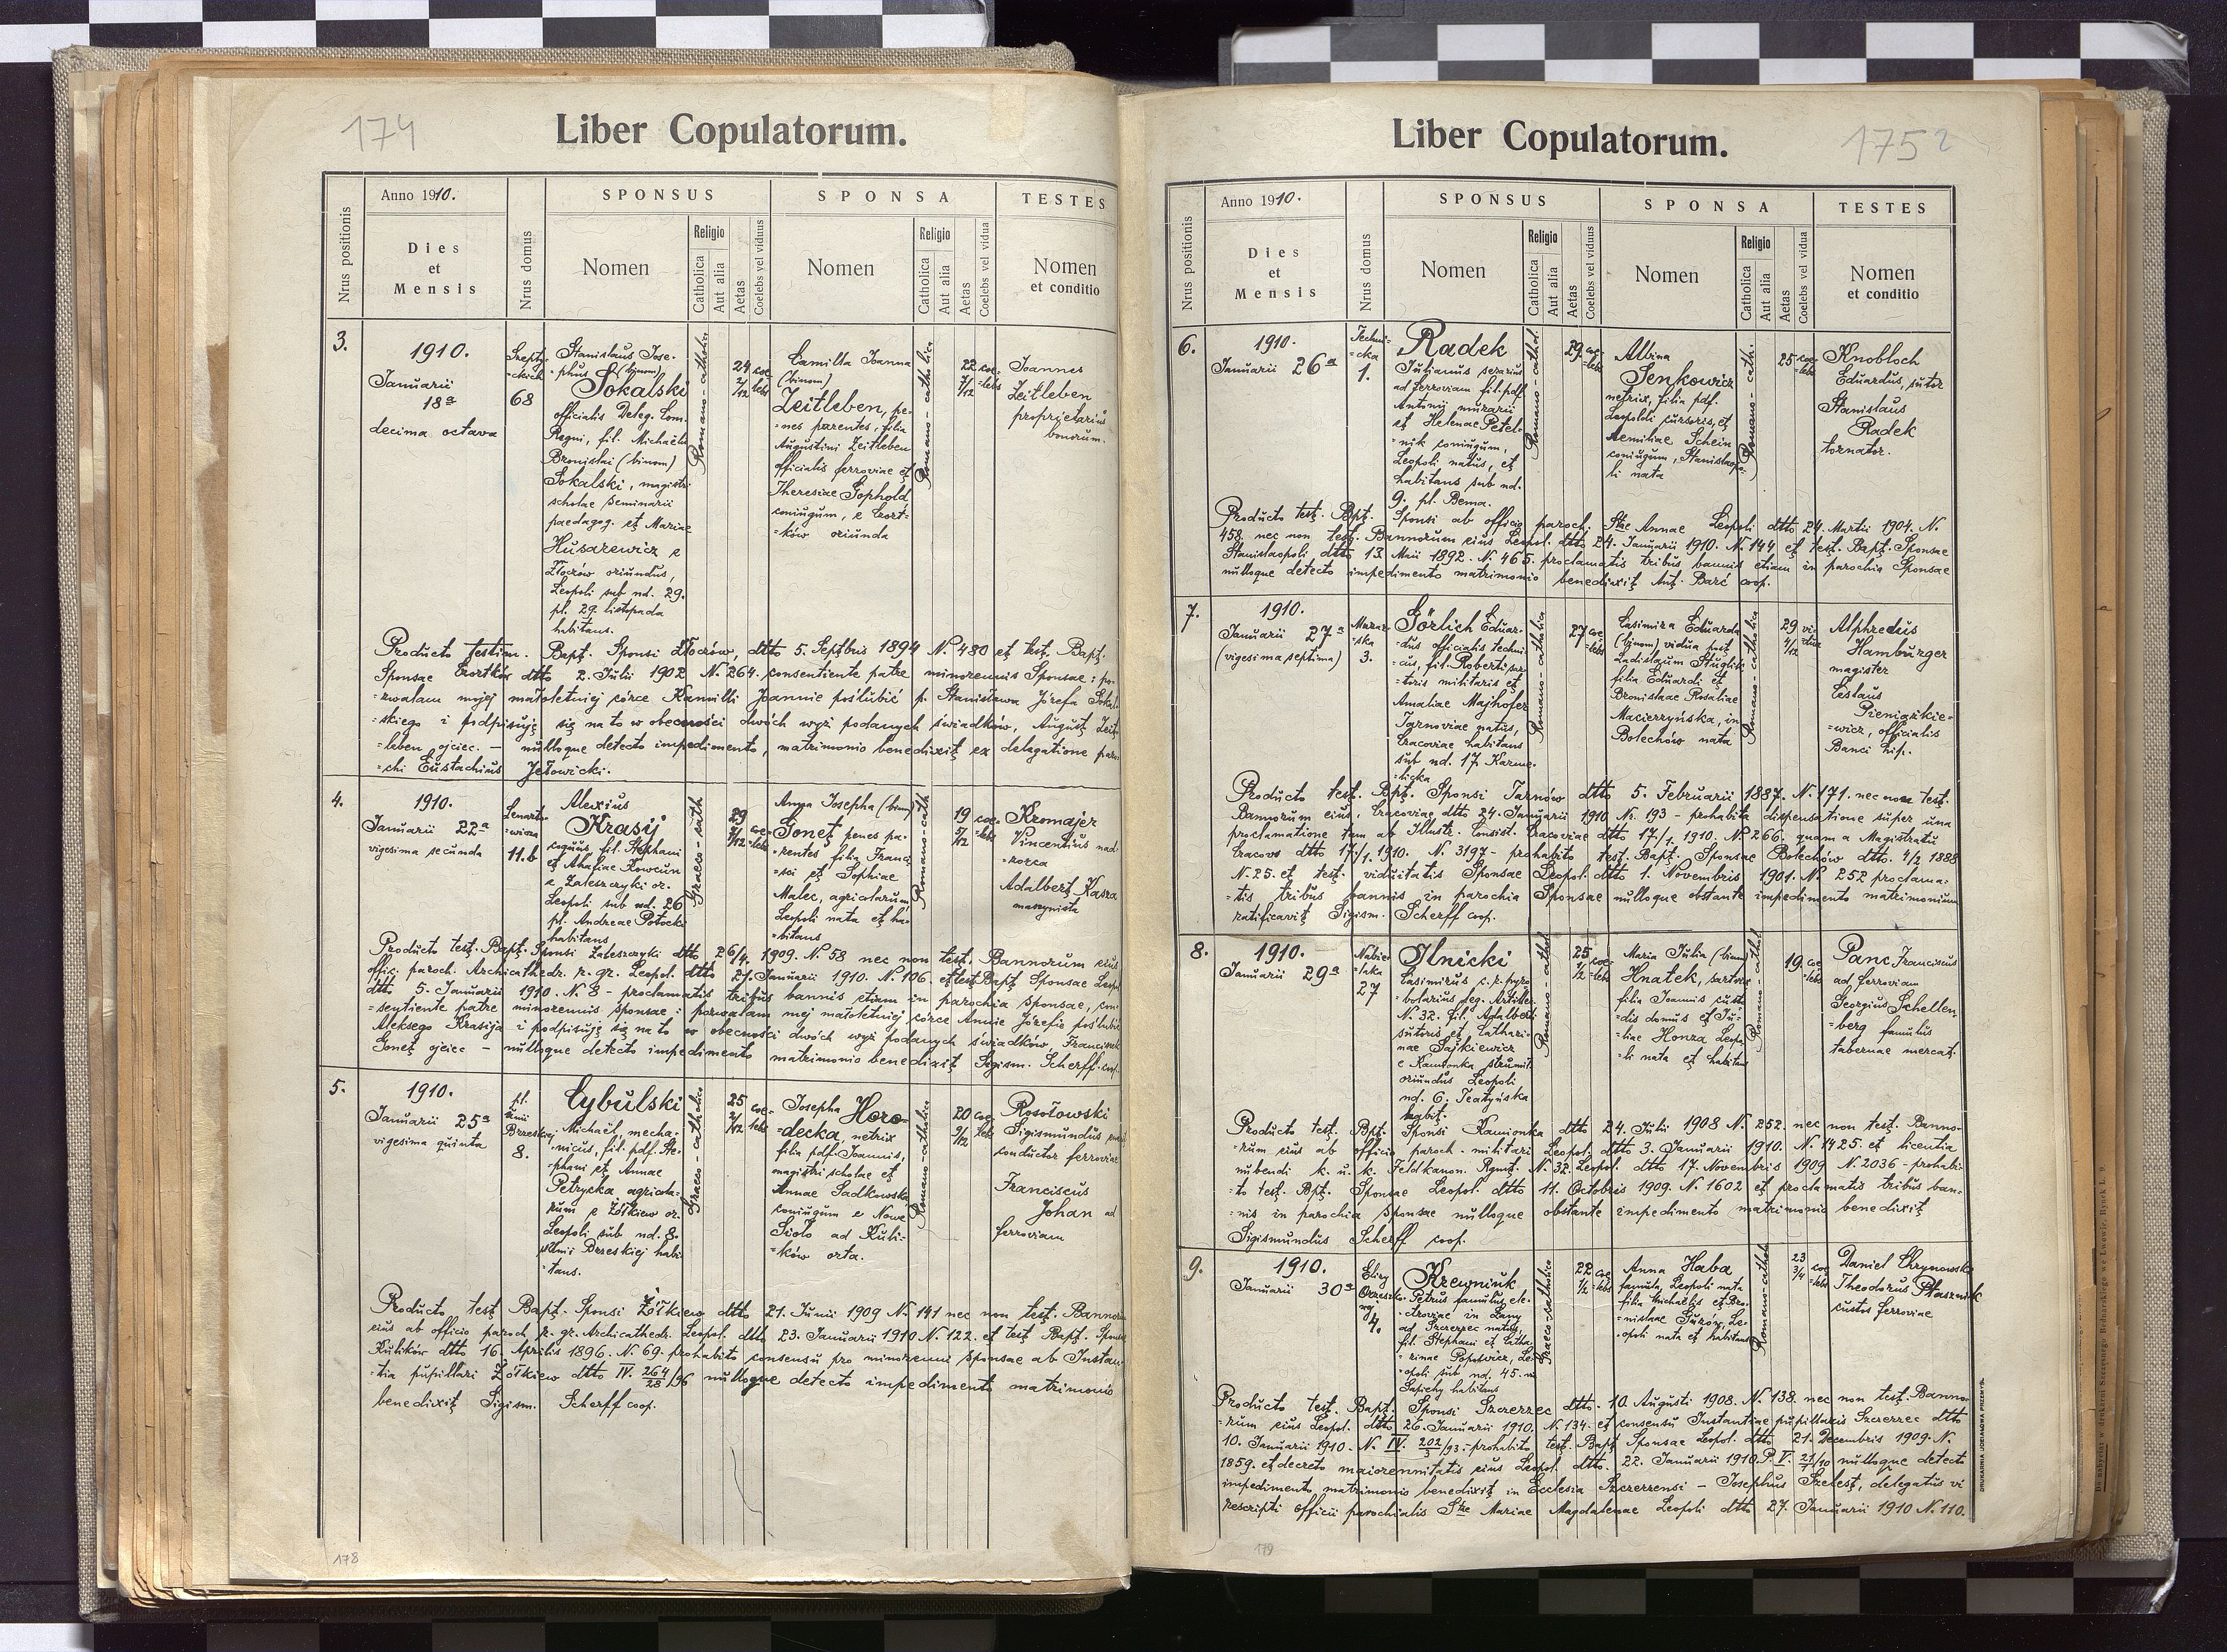 174
Liber Copulatorum.
Nrus positionis
Anno 1910.
Dies
et
Mensis
Nrus domus
SPONSUS
Nomen
Religio
Catholica
Aut alia
Aetas
Coelebs vel viduus
SPONSA
Nomen
Religio
Catholica
Aut alia
Aetas
Coelebs vel vidua
TESTES
Nomen
et conditio
3.
1910.
Januarii
18a
decima octava
Szepty-
-ckich
68
Stanislaus Jose-
-phus (binom)
Sokalski
officialis Deleg. Com.
Regni, fil. Michaelis
Bronislai (binom)
Sokalski, magistri
scholae seminarii
paedagog. et Mariae
Husarewicz e
Złoczów oriundus,
Leopoli sub nd. 29.
pl. 29. listopada
habitans.
Romano-catholica
24
2/12
coe-
lebs
Camilla Joanna
(binom)
Zeitleben, pe-
=nes parentes, filia
Augustini Zeitleben
officialis ferroviae et
Theresiae Gophold,
coniugum, e Czort-
=ków oriunda
Romano-catholica
22
7/12
coe-
=lebs
Joannes
Zeitleben
proprietarius
bonorum.
Producto testim. Bapt. Sponsi Złoczów, dtto 5. Septbris 1894 N. 480 et test. Bapt.
Sponsae Czortków dtto 2. Julii 1902 N. 264. consentiente patre minorennis Sponsae: po-
=zwalam mojej małoletniej córce Kamilli Joannie poślubić p. Stanisława Józefa Sokal-
=skiego i podpisuję się na to w obecności dwóch wyż podanych świadków, August Zeit-
=leben ojciec. — nulloque detecto impedimento, matrimonio benedixit ex delegatione paro-
=chi Eustachius Jełowicki.
4.
1910.
Januarii 22a
vigesima secunda
Lenarto-
=wicza
11.b
Alexius
Krasij
coquus, fil. Stephani
et Ahafiae Kowcun
e Zaleszczyki or.
Leopoli sub nd. 26
pl. Andreae Potocki
habitans
Graeco-cath
29
coe-
=lebs
Anna Josepha (binom)
Gonet penes pa-
=rentes filia Franci-
=sci et Sophiae
Malec, agricolarum
Leopoli nata et ha-
=bitans
Romano-cath
19
5/12
coe-
=lebs
Kromajer
Vincentius nad-
=zorca
Adalbert Kasza
maszynista
Producto test. Bapt. Sponsi Zaleszczyki dtto 26/4. 1909. N. 58 nec non test. Bannorum eius
offic. paroch. Archicathedr. r. gr. Leopol. dtto 21. Januarii 1910. N. 106. et test. Bapt. Sponsae Leopol.
dtto 5. Januarii 1910. N. 8 - proclamatis tribus bannis etiam in parochia sponsae, con-
=sentiente patre minorennis sponsae: pozwalam mej małoletniej córce Annie Józefie poślubić
Aleksego Krasija i podpisuję się na to w obecności dwóch wyż podanych świadków, Franciszek
Gonet ojciec — nulloque detecto impedimento matrimonio benedixit Sigism. Scherff coop.
5.
1910.
Januarii 25a
vigesima quinta
pl.
Unii
Brzeskiej
8.
Cybulski
Michaël, mecha-
=nicus, fil. pdf. Ste-
=phani et Annae
Petrycka, agricola-
rum e Żółkiew or.
Leopoli sub nd. 8.
pl. Unii Brzeskiej habi-
=tans.
Graeco-catholica
25
2/12
coe-
lebs
Josepha Horo-
=decka, netrix
filia pdf. Joannis,
magistri scholae et
Annae Sadkowska
coniugum e Nowe
Sioło ad Kuli-
=ków orta.
Romano-catholica
20
9/12
coe-
lebs
Rosołowski
Sigismundus
conductor ferroviae
Franciscus
Johan ad
ferroviam
Producto test. Bapt. Sponsi Żółkiew dtto 21. Junii 1909 N. 141 nec non test. Bannorum
eius ab officio paroch. r. gr. Archicathedr. Leopol. dtto 23. Januarii 1910 N. 122. et test. Bapt. Sponsae
Kulików dtto 16. Aprilis 1896. N. 69. prohabito consensu pro minorenni sponsae ab Instan-
=tia pupillari Żółkiew dtto IV. 264/28/96 nulloque detecto impedimento matrimonio
benedixit Sigism. Scherff coop.
178
1752
Liber Copulatorum.
Nrus positionis
Anno 1910.
Dies
et
Mensis
Nrus domus
SPONSUS
Nomen
Religio
Catholica
Aut alia
Aetas
Coelebs vel viduus
SPONSA
Nomen
Religio
Catholica
Aut alia
Aetas
Coelebs vel vidua
TESTES
Nomen
et conditio
6.
1910.
Januarii 26a
Techni-
=cka
1.
Radek
Julianus serarius
ad ferroviam fil. pdf.
Antonii murarii
et Helenae Petel-
=nik coniugum,
Leopoli natus, et
habitans sub nd.
9. pl. Bema.
Romano-cathol.
29
coe-
=lebs
Albina
Senkowicz
netrix, filia pdf.
Leopoldi cursoris, et
Aemiliae Schein
coniugum, Stanislaopo-
li nata
Romano-cath.
25
coe-
=lebs
Knobloch
Eduardus, sutor
Stanislaus
Radek
tornator.
Producto test. Bpt. Sponsi ab officio paroch. Stae Annae Leopoli dtto 24. Martii 1904. N.
458 nec non test. Bannorum eius Leopol. dtto 24. Januarii 1910. N. 144 et test. Bapt. Sponsae
Stanislaopoli dtto 13. Maii 1892. N. 465. proclamatis tribus bannis etiam in parochia Sponsae
nulloque detecto impedimento matrimonio benedixit Ant. Barć coop.
7.
1910.
Januarii 27a
(vigesima septima)
3.
Görlich Eduar-
=dus officialis techni-
=cus, fil. Roberti sar-
=toris militaris et
Amaliae Majhofer
Tarnoviae natus,
Cracoviae habitans
sub nd. 17 Karme-
=licka
Romano-catholica
27
coe-
=lebs
Casimira Eduarda
(binom) vidua post
Ladislaum Stuglik
filia Eduardi et
Bronislaae Rosaliae
Macierzyńska, in
Bolechów nata
Romano-catholica
29
4/12
vi-
dua
Alphredus
Hamburger
magister
Ceslaus
Pieniążkie-
=wicz, officialis
Banci hip.
Producto test. Bpt. Sponsi Tarnów dtto 5. Februarii 1887. N. 171. nec non test.
Bannorum eius, Cracoviae dtto 24. Januarii 1910 N. 193 - prohabita dispensatione super una
proclamatione tam ab Illustr. Consist. Cracoviae dtto 17/1. 1910. N. 266. quam a Magistratu
Cracov. dtto 17/1. 1910. N. 3197 - prohabito test. Bapt. Sponsae Bolechów dtto. 4/2 1888
N. 25. et test. viduitatis Sponsae Leopol. dtto 1. Novembris 1901. N. 252 proclama-
=tis tribus bannis in parochia Sponsae nulloque obstante impedimento matrimonium
ratificavit Sigism. Scherff coop.
8.
1910.
Januarii 29a
Nabie-
=laka
27
Ilnicki
Casimirus c. r. pyro-
=bolarius leg. Artiller.
N. 32. fil. Adalberti
sutoris et Cathari-
nae Sajkiewicz
e Kamionka strumił.
oriundus Leopoli
nd. 6. Teatyńska
habit.
Romano-cathol
25
1/2
coe-
=lebs
Maria Julia (binom)
Hnatek, sartrix
filia Joannis custo-
=dis domus et Ju-
=liae Honza Leopo-
li nata et habitans
Romano-cathol
19
coe
=lebs
Panc Franciscus
ad ferroviam
Georgius Schellen-
=berg famulus
tabernae mercat.
Producto test. Bpt. Sponsi Kamionka dtto 24. Julii 1908 N. 252. nec non test. Banno-
=rum eius ab officio paroch. militari Leopol. dtto 3. Januarii 1910. N. 1425. et licentia
nubendi k. u. k. Feldkanon. Rgmt. N. 32. Leopol. dtto 17. Novembris 1909 N. 2036 - prohabi-
=to test. Bpt. Sponsae Leopol. dtto 11. Octobris 1909. N. 1602 et proclamatis tribus ban-
=nis in parochia Sponsae nulloque obstante impedimento matrimonio benedixit
Sigismundus Scherff coop.
9.
1910.
Januarii 30a
Elizy
Orzeszko-
wej
4.
Krewniuk
Petrus famulus ele-
ctroviae in Łany
ad Szczerzec natus,
fil. Stephani et Catha-
rinae Popowicz, Le-
opoli sub nd. 45.
Sapiehy habitans
Graeco-catholica
22
1/2
coe
=lebs
Anna Haba
famula, Leopoli nata
filia Michaelis et Bro-
=nislaae Guzów, Le-
opoli nata et habitans
Romano-cathol
23
3/4
coe
=lebs
Daniel Chrynowski
Theodorus Ptasznik
custos ferroviae
Producto test. Bapt. Sponsi Szczerzec dtto. 10. Augusti 1908. N. 138. nec non test. Banno-
=rum eius Leopol. dtto 26. Januarii 1910. N. 134. et consensu Instantiae pupillaris Szczerzec dtto
10. Januarii 1910. N. IV. 202/93 - prohabito test. Bapt. Sponsae Leopol. dtto 21. Decembris 1909. N.
1859. et decreto maiorennitatis eius Leopol. dtto. 22. Januarii 1910. P. V. 21/10 nulloque detecto
impedimento matrimonio benedixit in Ecclesia Szczerzensi - Josephus Szelest, delegatus vi
rescripti officii parochialis Stae Mariae Magdalenae Leopoli dtto 27. Januarii 1910 N. 110.
DRUKARNIA UDZIAŁOWA PRZEMYŚL.
179
Do nabycia w drukarni Szczęsnego Bednarskiego we Lwowie, Rynek L. 9.